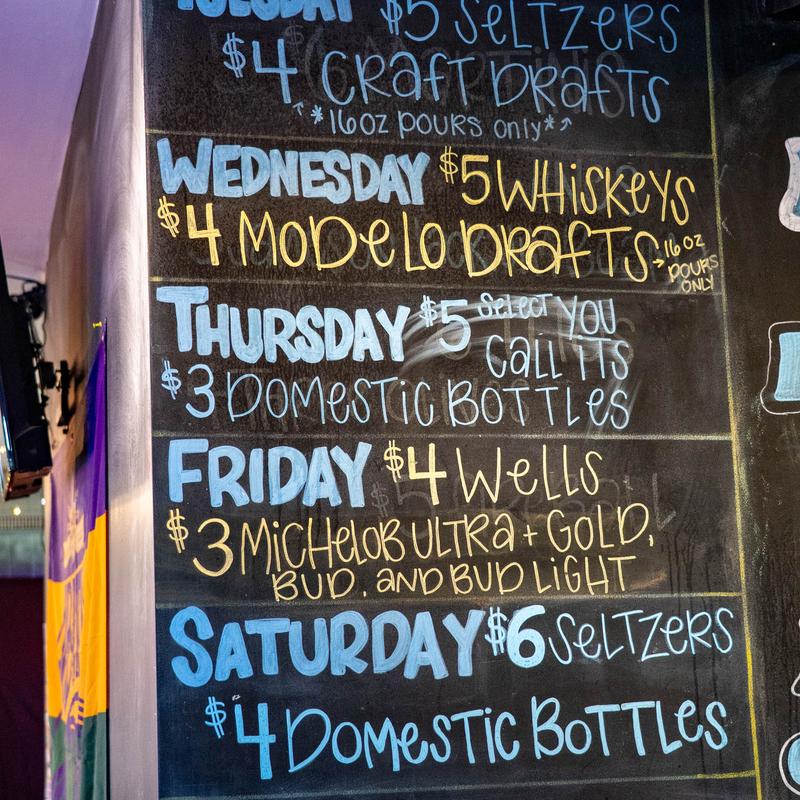 TUESDAY $5 SELTZERS
$4 CRAFT DRAFTS
*16oz POURS ONLY*
WEDNESDAY $5 WHISKEYS
$4 MODELO DRAFTS → 16 OZ
POURS
ONLY
THURSDAY $5 SELECT YOU
CALL ITS
$3 DOMESTIC BOTTLES
FRIDAY $4 WELLS
$3 MICHELOB ULTRA + GOLD,
BUD, AND BUD LIGHT
SATURDAY $6 SELTZERS
$4 DOMESTIC BOTTLES